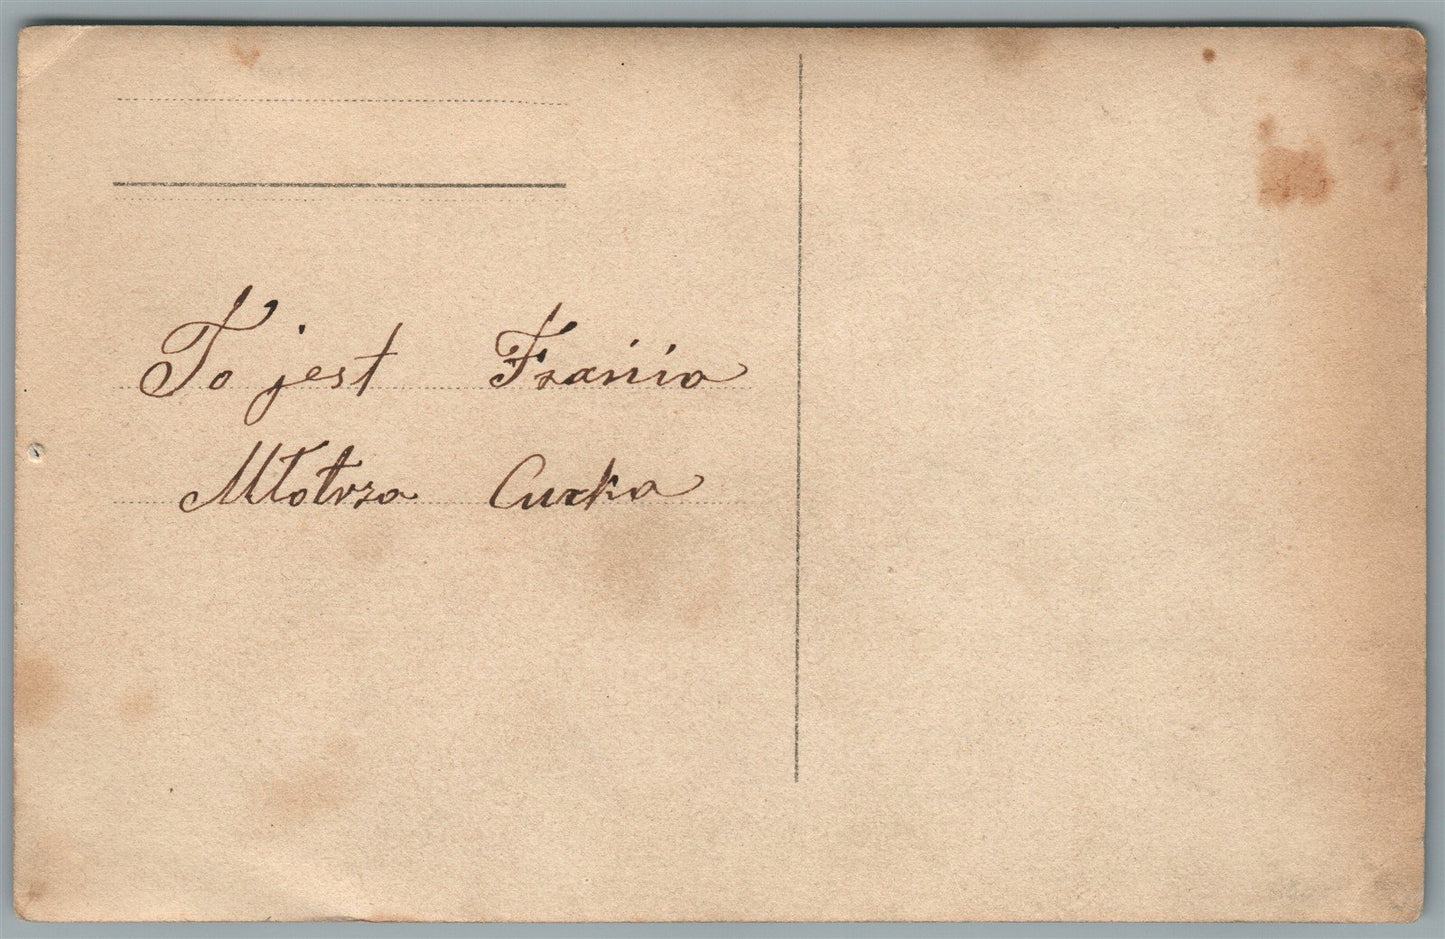 To jest Frańia
Młotrza Curka